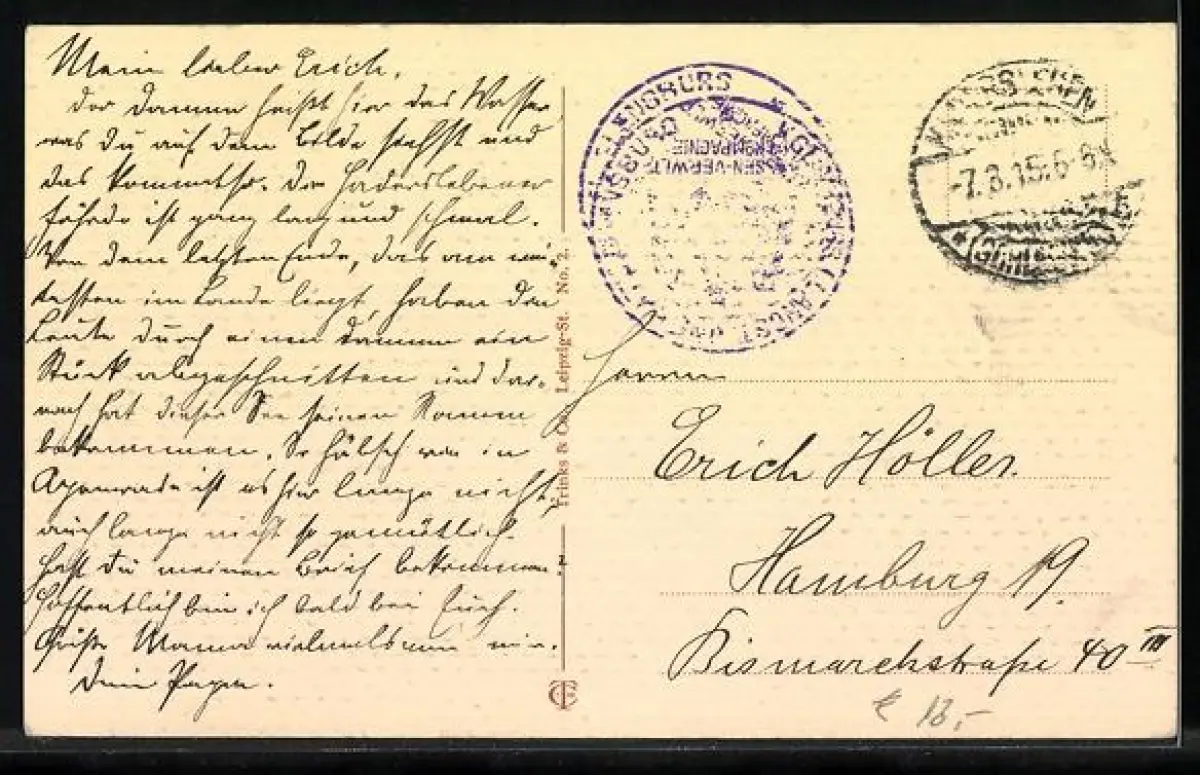 Mein lieber Erich,
der Damm heißt hier das Wasser
was du auf dem Bilde siehst und
das kommt so. Der Haderslebener
föhrde ist ganz lang und schmal.
Von dem letzten Ende, das am wei-
testen im Lande liegt, haben die
Leute durch einen Damm ein
Stück abgeschnitten und dar-
nach hat dieser See seinen Namen
bekommen. So hübsch wie in
Apenrade ist es hier lange nicht,
auch lange nicht so gemütlich.
Hast du meinen Brief bekommen?
Hoffentlich bin ich bald bei Euch.
Grüße Mama vielmals von mir.
Dein Papa.
Trinks & Co., Leipzig-St. No. 2.
FLENSBURG
KOMPAGNIE
HADERSLEBEN
-7.3.15. 6-8N
Herrn
Erich Höller.
Hamburg 19.
Bismarckstraße 40 III
€ 18,-